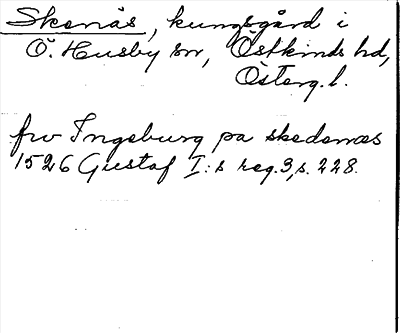 Skenäs, kungsgård i
Ö. Husby sn, Östkinds hd,
Österg. l.
fru Ingeburg pa skedenæs
1526 Gustaf I:s reg. 3, s. 228.